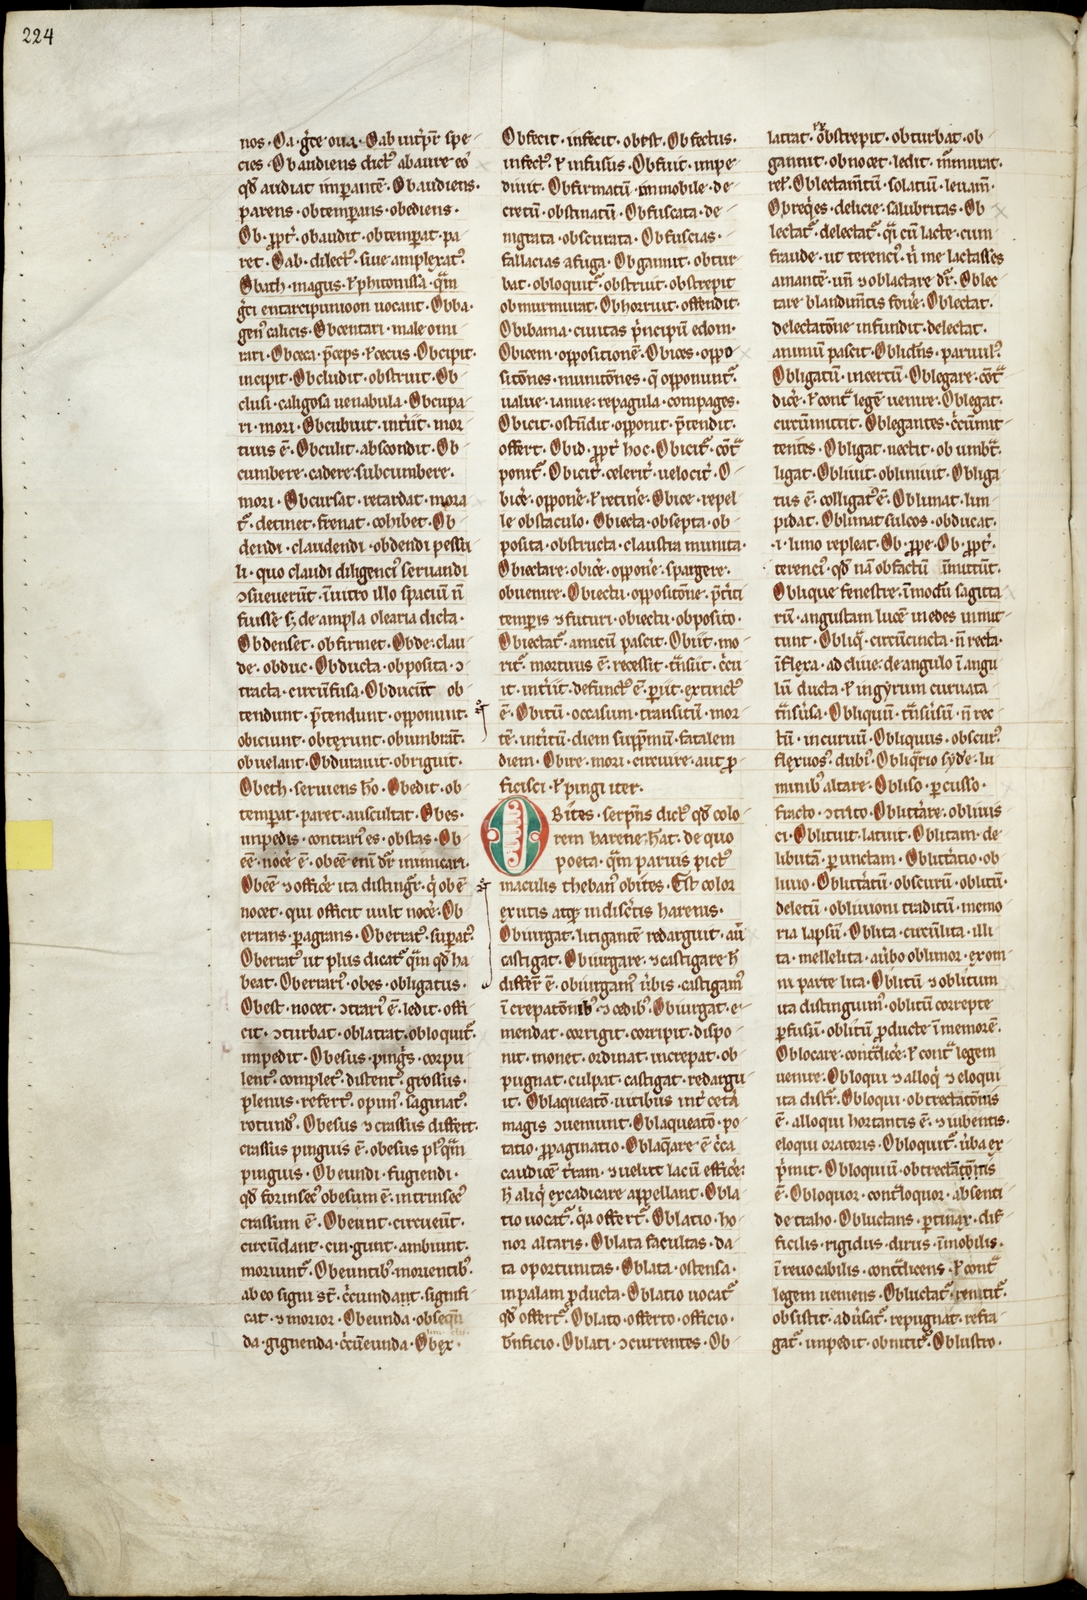 224
nos · Oa · g̃ce oua · Oab iut̃pr̃ spe-
cies · Obaudiens dict᷒ abaure eo᷒
qd̃ audiat imꝑantẽ · Obaudiens ·
parens · obtemꝑans obediens ·
Ob · ꝓpt̃ · obaudit · obtemꝑat · pa-
ret · Oab · dilect᷒ · siue amplexat᷒ ·
Obath · magus · ł phitonissa · q̃m
g̃ci entarcipimoon uocant · Obba ·
gen᷒ calicis · Obcentari · male omi-
nari · Obceca · p̃ceps · ł cecus · Obcipit ·
incipit · Obcludit · obstruit · Ob-
clusi · caligosa uenabula · Obcupa-
ri · mori · Obcubuit · int̃iit · mor-
tuus ẽ · Obculit · abscondit · Ob-
cumbere · cadere · subcumbere ·
mori · Obcursat · retardat · mora
t᷒ · detinet · frenat · cohibet · Ob-
dendi · claudendi · obdendi pessu-
li · quo claudi diligenci᷒ seruandi
ɔsueuerũt · ĩ uitro illo spaciũ ñ
fuisse s; de ampla olearia dicta ·
Obdenset · obfirmet · Obde · clau-
de · obduc · Obducta · obposita · ɔ-
tracta · circũfusa · Obducũt ob-
tendunt · p̃tendunt · opponunt ·
obiciunt · obtexunt · obumbrãt ·
obuelant · Obdurauit · obriguit ·
Obeth · seruiens hõ · Obedit · ob-
temꝑat · paret · auscultat · Obes ·
impedis · contrari᷒ es · obstas · Ob-
eẽ · nocẽ ẽ · obeẽ eni dr̃ inimicari ·
Obeẽ ⁊ officẽ ita distingũr · q̇ obẽ
nocet · qui officit uult nocẽ · Ob-
errans · ꝑagrans · Oberrat᷒ · suꝑat᷒ ·
Oberrat᷒ ut plus dicat᷒ q̃m qd̃ ha
beat · Oberrari᷒ · obes · obligatus ·
Obest · nocet · ɔtrari᷒ ẽ · ledit · offi-
cit · ɔturbat · oblatrat · obloquit᷒ ·
impedit · Obesus · ping̃s · corpu-
lent᷒ · complet᷒ · distent᷒ · grossus ·
plenus · refert᷒ · opim᷒ · saginat᷒ ·
rotund᷒ · Obesus ⁊ crassus differt ·
crassus pinguis ẽ · obesus pl᷒ q̃m
pinguis · Obeundi · fugiendi ·
qd̃ forinsec᷒ obesum ẽ · intrinsec᷒
crassum ẽ · Obeunt · circueũt ·
circũdant · cin·gunt · ambiunt ·
moriunt᷒ · Obeuntib᷒ · morientib᷒ ·
ab eo signi st̃ · c̃cumdant · signifi-
cat · ⁊ morior · Obeunda · obseqũ
da · gignenda · c̃cũeunda · Obex ·
Obfecit · infecit · obest · Obfectus ·
infect᷒ ł infusus · Obfuit · impe-
diuit · Obfirmatũ · immobile · de-
cretũ · obstinatũ · Obfuscata · de-
nigrata · obscurata · Obfuscias ·
fallacias a fuga · Obgannit · obtur-
bat · obloquit᷒ · obstruit · obstrepit
obmurmurat · Obhorruit · offendit ·
Obibama · ciuitas p̃ncipiũ edom ·
Obicem · oppositionẽ · Obices · oppo-
sitões · munitões · q̃ opponunt᷒ ·
ualue · ianue · repagula · compages ·
Obicit · ostñdit · opponit · p̃tendit ·
offert · Obid · ꝓpt̃ hoc · Obicit᷒ · cõt̃
ponit᷒ · Obicit̃ · celerit̃ · uelocit̃ · O-
bicẽ · opponẽ · ł retinẽ · Obice · repel-
le obstaculo · Obiecta · obsepta · ob-
posita · obstructa · claustra munita ·
Obiectare · obicẽ · opponẽ · spargere ·
obuenire · Obiectu · oppositõne · p̃t̃iti
temꝑis ⁊ futuri · obiectu · obposito ·
Obiectat᷒ · amicũ pascit · Obiit · mo-
rit᷒ · mortuus ẽ · recessit · t̃nsiit · c̃cu-
it · int̃iit · defunct᷒ ẽ · ꝑiit · extinct᷒
ẽ · Obitũ · occasum · transitũ · mor-
tẽ · int̃itũ · diem supp̃mũ · fatalem
diem · Obire · mori · circuire · aut ꝓ-
ficisci · ł pingi iter ·
OBites · serp̃ns dict᷒ qd̃ colo-
rem harene h̃at · de quo
poeta · q̃m paruis pict᷒
maculis theban᷒ obites · Est color
exutis atq; indisc̃tis harenis ·
Obiurgat · litigantẽ redarguit · aũ
castigat · Obiurgare · ⁊ castigare h̃
differ̃ ẽ · obiurgam᷒ ũbis · castigam᷒
ĩ crepatõnib᷒ · ⁊ cedib᷒ · Obiurgat · e-
mendat · corrigit · corripit · dispo-
nit · monet · ordinat · increpat · ob-
pugnat · culpat · castigat · redargu-
it · Oblaqueatõ · uitibus int̃ cetã
magis ɔueniunt · Oblaqueatõ · po-
tatio · ꝓpaginatio · Oblaq̃are ẽ c̃ca
caudicẽ t̃ram · ⁊ uelut lacũ efficẽ ·
h̃ aliq̇ excadicare appellant · Obla-
tio uocat᷒ · q̃a offert᷒ · Oblatio · ho-
nor altaris · Oblata facultas · da-
ta oportunitas · Oblata · ostensa ·
in palam ꝓducta · Oblatio uocat᷒
qd̃ offert᷒ · Oblato · offerto · officio ·
b̃nficio · Oblati · ɔcurrentes · Ob-
latrat · obstrepit · obturbat · ob-
gannit · obnocet · ledit · ĩmurat ·
rel᷒ · Oblectam̃tũ · solatiũ · leuam̃ ·
Obreq̃es · delicie · salubritas · Ob-
lectat᷒ · delectat᷒ · q̃i cũ lacte · cum
fraude · ut terenci᷒ · ñ me lactasses
amantẽ · uñ ⁊ oblactare dr̃ · Oblec-
tare blandim̃tis fouẽ · Oblectat ·
delectatõne infundit · delectat ·
animũ pascit · Oblid̃ns · paruul᷒ ·
Obligatũ · incertũ · Oblegare · cõt̃
dicẽ · ł cont̃ legẽ uenire · Oblegat ·
circũmittit · Oblegantes · c̃cũmit-
tentes · Obligat · uectit · ob umbt̃ ·
ligat · Obliuit · obliniuit · Obliga-
tus ẽ · colligat᷒ ẽ · Oblimat · lim-
pidat · Oblimat sulcos · obducat ·
·i· limo repleat · Ob · ꝓpe · Ob · ꝓpt̃ ·
terenci᷒ · qd̃ nã obfactũ ĩmutũt ·
Oblique fenestre · ĩ modũ sagitta
rũ · angustam lucẽ in edes inmit-
tunt · Obliq̃ · circũcincta · ñ recta ·
ĩflexa · ad cliue · de angulo ĩ angu
lũ ducta · ł in gyrum curuata ·
t̃nsũsa · Obliquũ · t̃nsũsũ · ñ rec-
tũ · incuruũ · Obliquus · obscur᷒ ·
flexuos᷒ · dubi᷒ · Obliq̃tio syde · lu-
minib᷒ altare · Obliso · ꝑcusso ·
fracto · ɔtrito · Oblitt̃are · obliuis-
ci · Oblituit · latuit · Oblitam · de-
libutã · ꝑunctam · Oblitt̃atio · ob-
liuio · Oblitt̃atũ · obscurũ · oblitũ ·
deletũ · obliuioni traditũ · memo-
ria lapsũ · Oblita · circũlita · illi-
ta · mellelita · aũbo oblimor · ex om-
ni parte lita · Oblitũ ⁊ oblitum
ita distinguim᷒ · oblitũ correpte
ꝑfusũ · oblitũ ꝓducte ĩmemorẽ ·
Oblocare · cont̃dicẽ · ł cont̃ legem
uenire · Obloqui ⁊ alloq̇ ⁊ eloqui
ita distr̃ · Obloqui · obtrectatõnis
ẽ · alloqui hortantis ẽ · ⁊ iubentis ·
eloqui oratoris · Obloquit᷒ · ũba ex-
p̃mit · Obloquiũ · obtrectatõnis
ẽ · Obloquor · cont̃loquor · absenti
detraho · Obluctans · ꝑtinax · dif-
ficilis · rigidus · dirus · ĩmobilis ·
ĩreuocabilis · cont̃dicens · ł cont̃
legem ueniens · Obluctat᷒ · renitit᷒ ·
obsistit · adũsat᷒ · repugnat · refra-
gat᷒ · impedit · obnitit᷒ · Oblustro ·